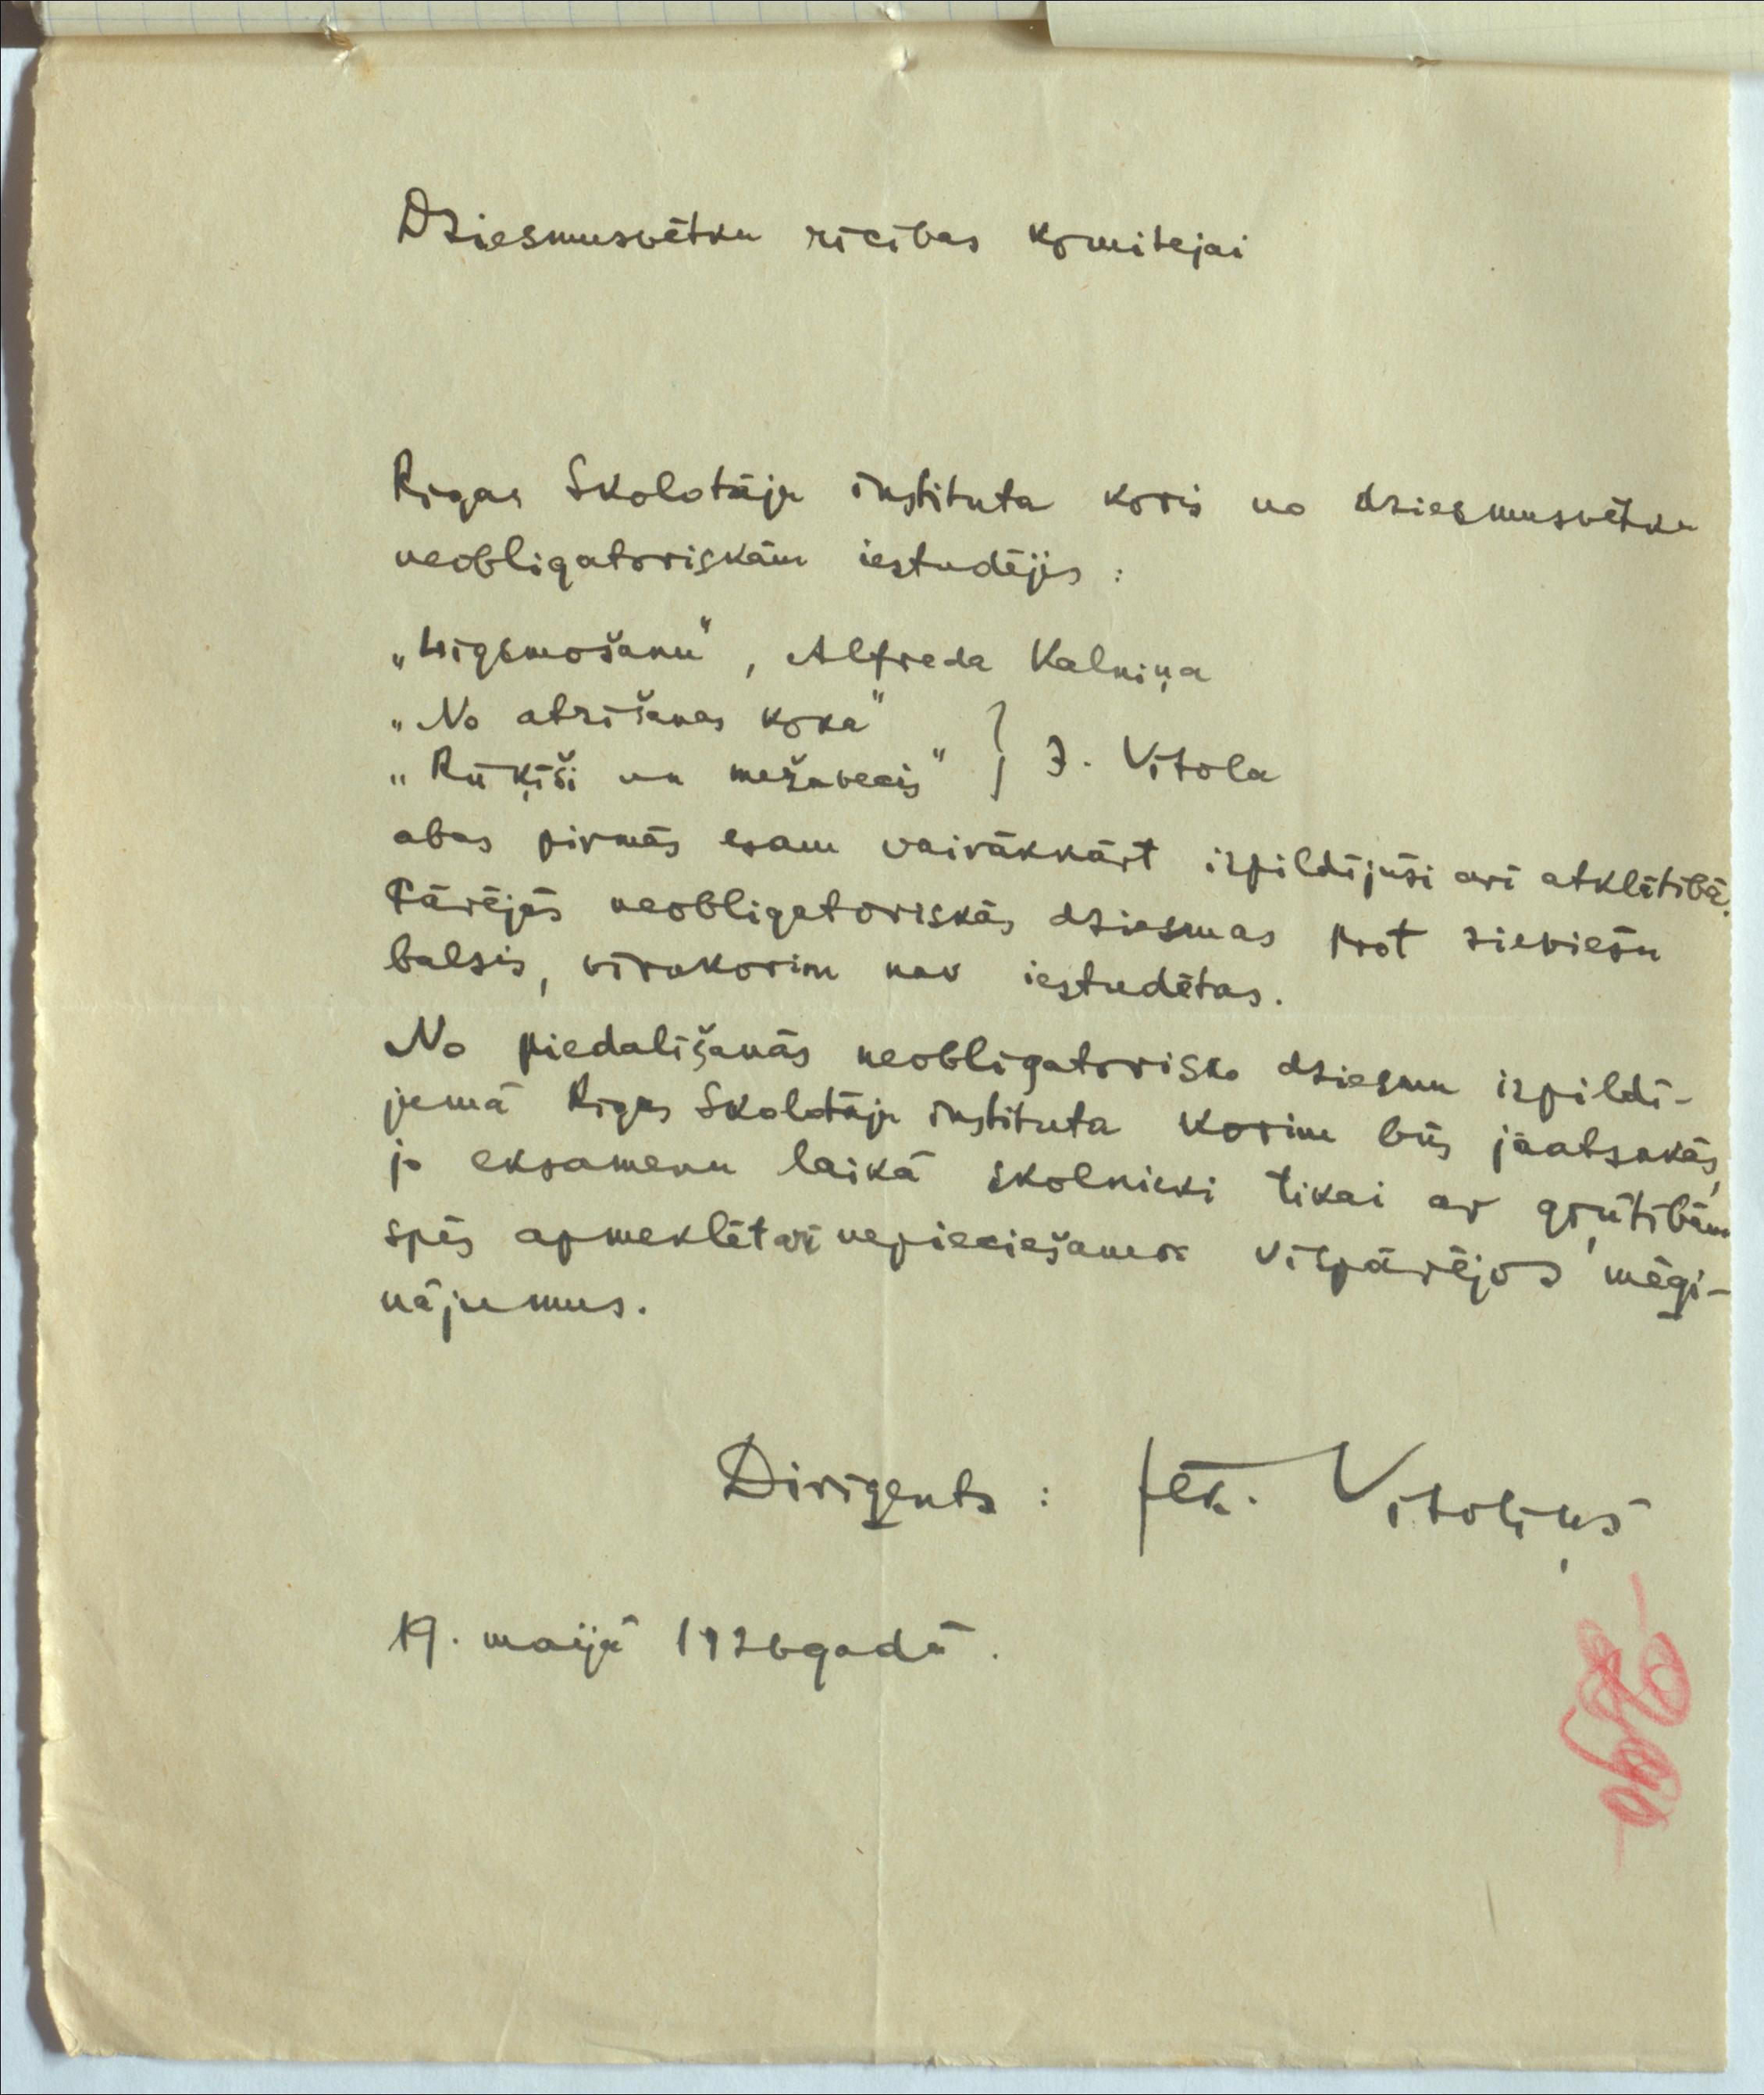 Dziesmusvētku rīcības komitejai
Rīgas Skolotāju institūta koris no dziesmusvētku
neobligatoriskām iestudējis:
„Līgsmošanu", Alfreda Kalniņa
„No atzīšanas koka"
„Rūķīši un mežavecis" } J. Vītola
abas pirmās esam vairākkārt izpildījuši arī atklātībā.
Pārējās neobligatoriskās dziesmas prot sieviešu
balsis, vīrukorim nav iestudētas.
No piedalīšanās neobligatorisko dziesmu izpildī-
jumā Rīgas Skolotāju institūta korim būs jāatsakās,
jo eksamenu laikā skolnieki tikai ar grūtībām
spēs apmeklēt arī nepieciešamos vispārējos mēģi-
nājumus.
Diriģents: Jēk. Vītoliņš
19. maijā 1926 gadā.